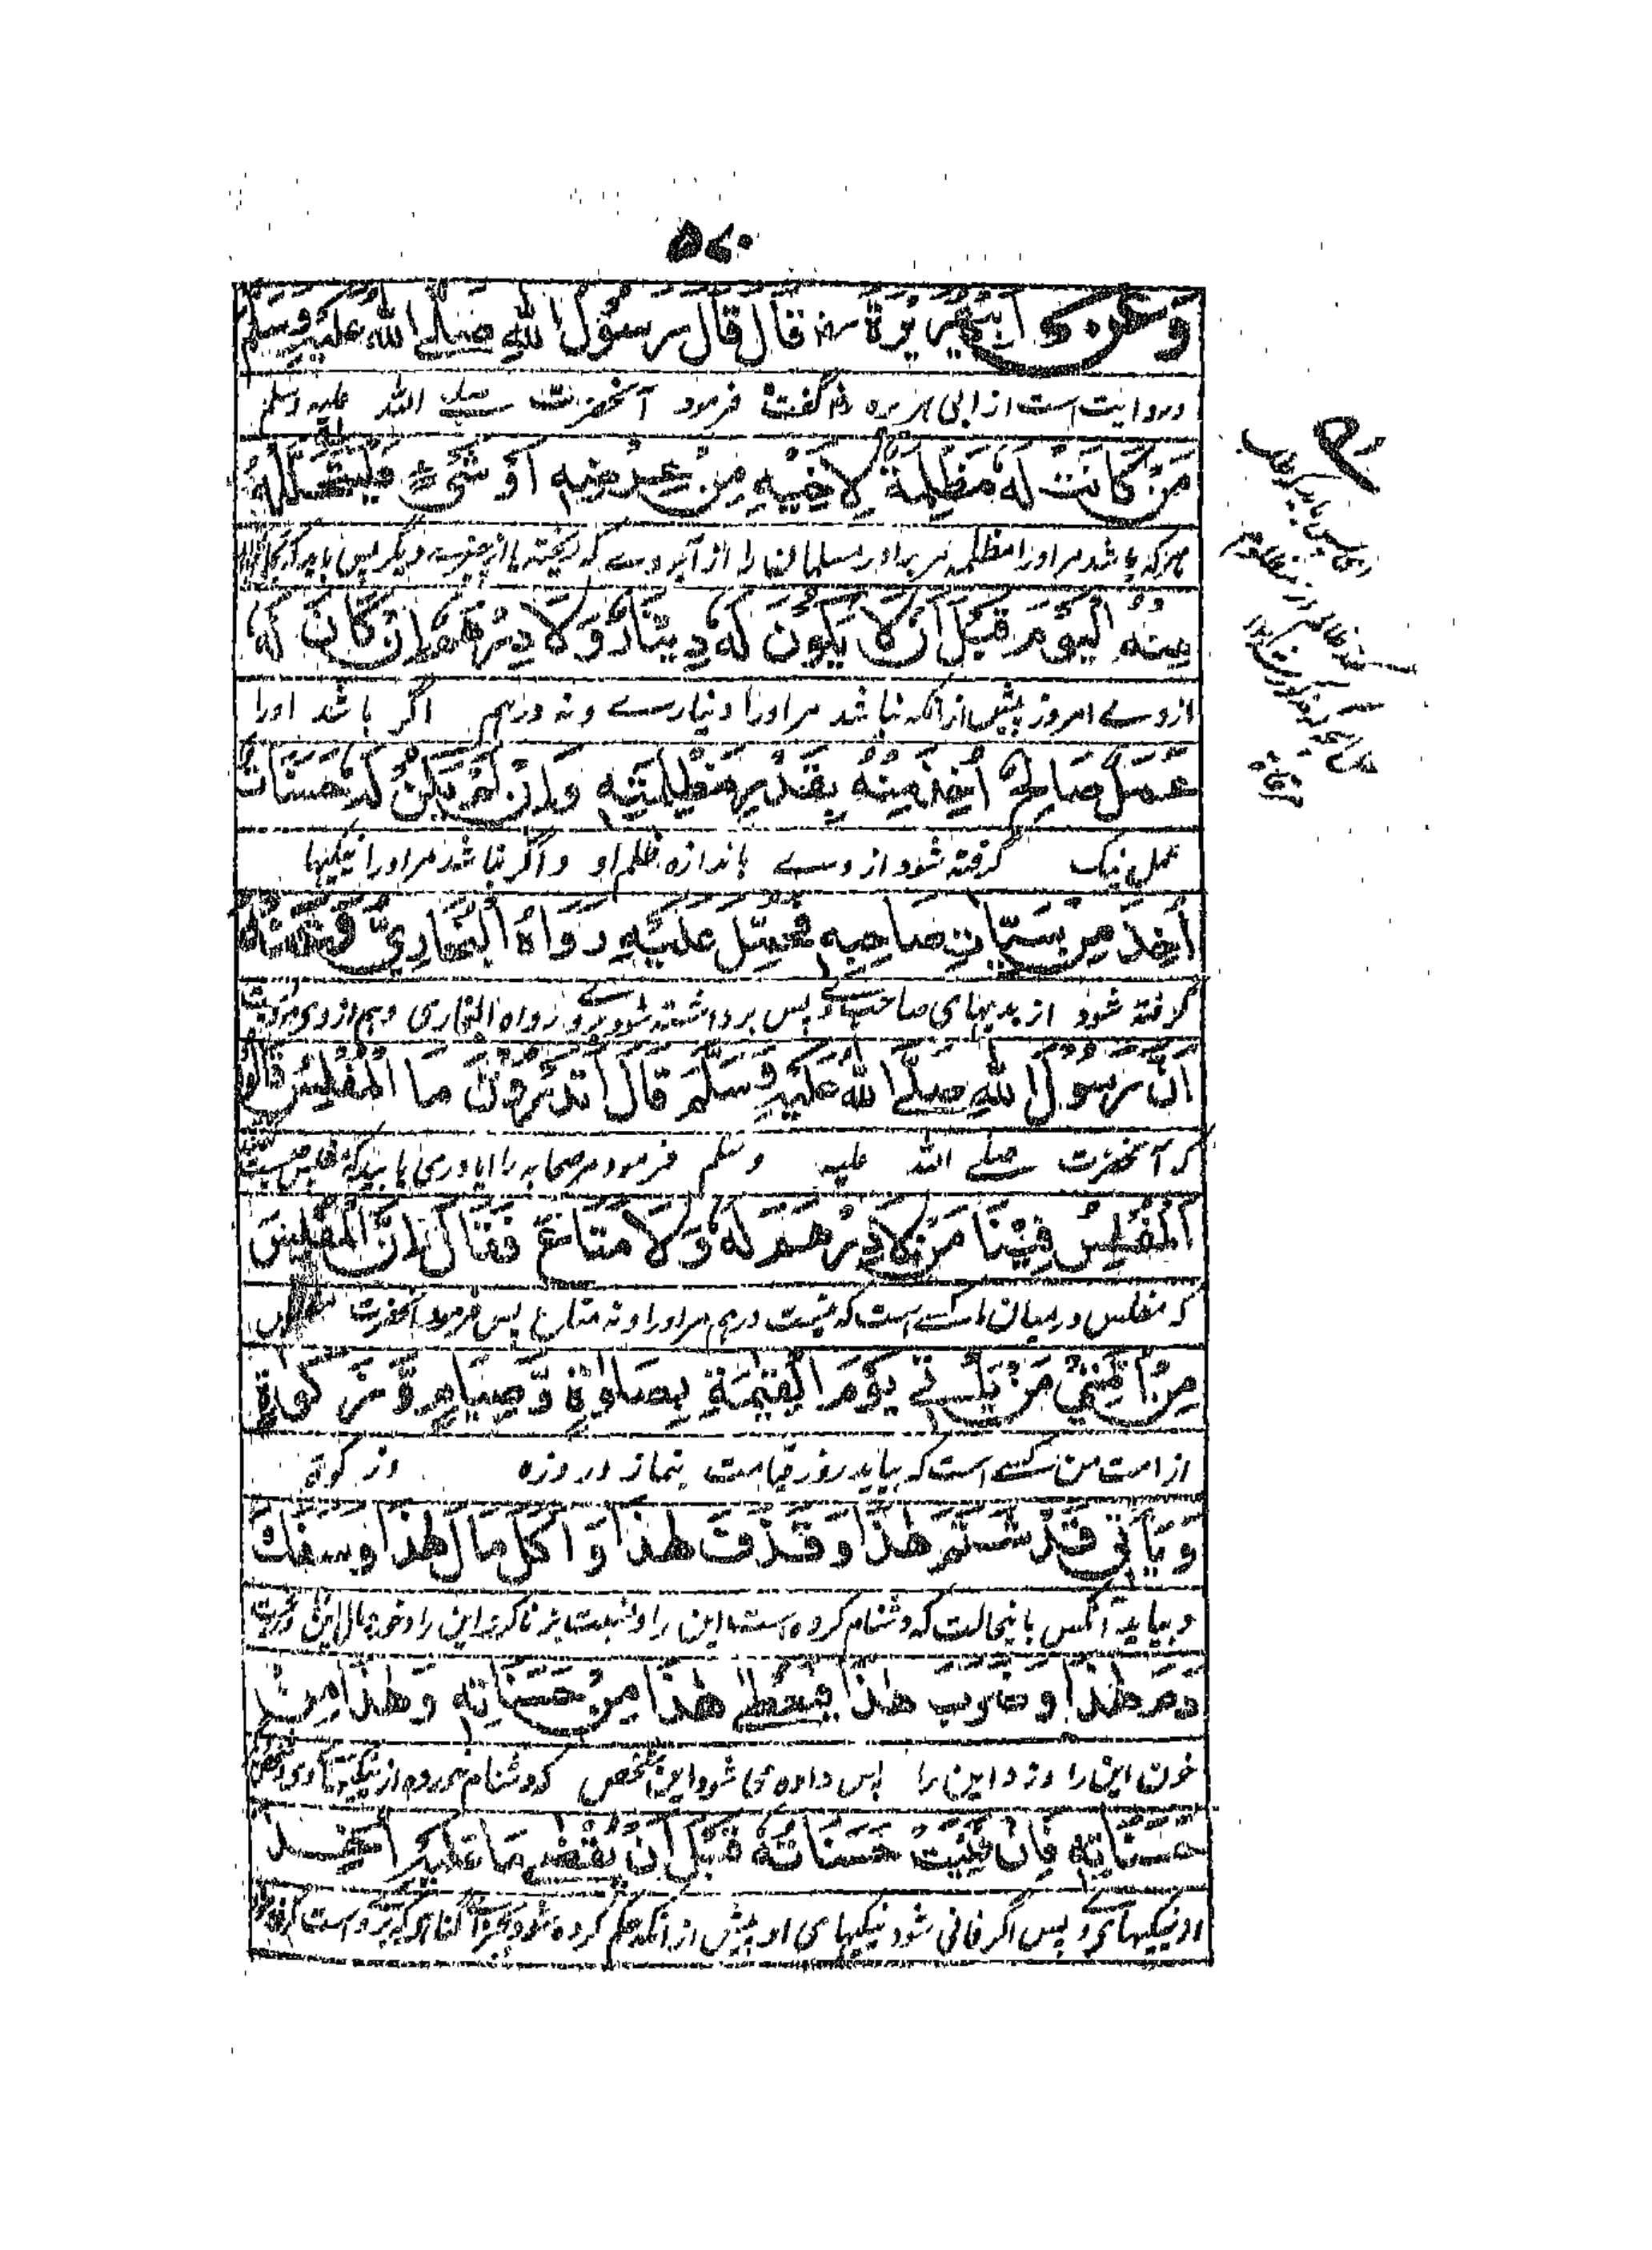 ۵۷۰
وَعَنْ اَبِیْ هُرَیْرَةَ رض قَالَ قَالَ رَسُوْلُ اللهِ صَلَّی اللهُ عَلَیْهِ وَسَلَّمَ
و روایت است از ابی هریره رض گفت فرمود آنحضرت صلے الله علیه وسلم
مَنْ کَانَتْ لَهٗ مَظْلِمَةٌ لِاَخِیْهِ مِنْ عِرْضِهٖ اَوْ شَیْءٍ فَلْیَتَحَلَّلْهُ
هر که باشد مر او را مظلمه مر برادر مسلمان را از آبروے که ریخته یا از چیزے دیگر پس باید که
مِنْهُ الْیَوْمَ قَبْلَ اَنْ لَا یَکُوْنَ لَهٗ دِیْنَارٌ وَلَا دِرْهَمٌ اِنْ کَانَ لَهٗ
از وے امروز پیش از آنکه نباشد مر او را دینارے و نه درہم اگر باشد او را
عَمَلٌ صَالِحٌ اُخِذَ مِنْهُ بِقَدْرِ مَظْلِمَتِهٖ وَاِنْ لَمْ یَکُنْ لَهٗ حَسَنَاتٌ
عمل نیک گرفته شود از وے باندازه ظلم او و اگر نباشد مر او را نیکیها
اُخِذَ مِنْ سَیِّاٰتِ صَاحِبِهٖ فَحُمِلَ عَلَیْهِ رَوَاهُ الْبُخَارِیُّ وَعَنْهُ
گرفته شود از بدیهای صاحب او پس برداشته شود بروے رواه البخاری و هم از وی مرویست
اَنَّ رَسُوْلَ اللهِ صَلَّی اللهُ عَلَیْهِ وَسَلَّمَ قَالَ اَتَدْرُوْنَ مَا الْمُفْلِسُ قَالُوْا
که آنحضرت صلے الله علیه وسلم فرمود مر صحابه را آیا در می یابید که مفلس چیست
اَلْمُفْلِسُ فِیْنَا مَنْ لَا دِرْهَمَ لَهٗ وَلَا مَتَاعَ فَقَالَ اِنَّ الْمُفْلِسَ
که مفلس در میان ما کسے است که نیست درہم مر او را و نه متاع پس فرمود آنحضرت
مِنْ اُمَّتِیْ مَنْ یَّأْتِیْ یَوْمَ الْقِیٰمَةِ بِصَلٰوةٍ وَّصِیَامٍ وَّزَکٰوةٍ
از امت من کسے است که بیاید روز قیامت بنماز و روزه و زکوة
وَیَأْتِیْ قَدْ شَتَمَ هٰذَا وَقَذَفَ هٰذَا وَاَکَلَ مَالَ هٰذَا وَسَفَكَ
و بیاید آنکس باینحالت که دشنام کرده است این را و نسبت بزنا کرده این را و خورد مال این را
دَمَ هٰذَا وَضَرَبَ هٰذَا فَیُعْطٰی هٰذَا مِنْ حَسَنَاتِهٖ وَهٰذَا مِنْ
خون این را و زد این را پس داده می شود این شخص که دشنام کرده از نیکیها
حَسَنَاتِهٖ فَاِنْ فَنِیَتْ حَسَنَاتُهٗ قَبْلَ اَنْ یُّقْضٰی مَا عَلَیْهِ اُخِذَ
از نیکیهای او پس اگر فانی شود نیکیهای او پیش از آنکه حکم کرده شود گناهی که بروست